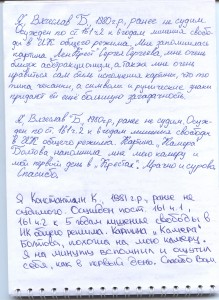 Я, Вячеслав Б., 1980 г.р., ранее не судим.
Осужден по ст. 161 ч.2 к 6 годам лишения свобо-
ды в ИК общего режима. Мне запомнилась
картина „ Сергея Сергеева, мне очень
абстракционизм, а также мне очень
нравится сам исполнения картины, что-то
типа чеканки, а символы и рунические знаки
придают ей ещё большую загадочность.
Я, Вячеслав Б., 1980 г.р., ранее не судим. Осуж-
ден по ст. 161 ч.2 к 6 годам лишения свободы
в ИК общего режима. Картина „Камера
Болтова" напомнила мне мою камеру и
мой первый день в „Крестах". Мрачно и сурово
Спасибо.
Я Константин К. 1981 г.р., ранее не
судимого. Осужден по ст. 161 ч.1,
161 ч.2 к 5 годам лишения свободы в
ИК общего режима. Картина „Камера
Болтова", похожа на мою камеру.
Я на минуту вспомнил и ощутил
себя, как в первый день. Спасибо Вам